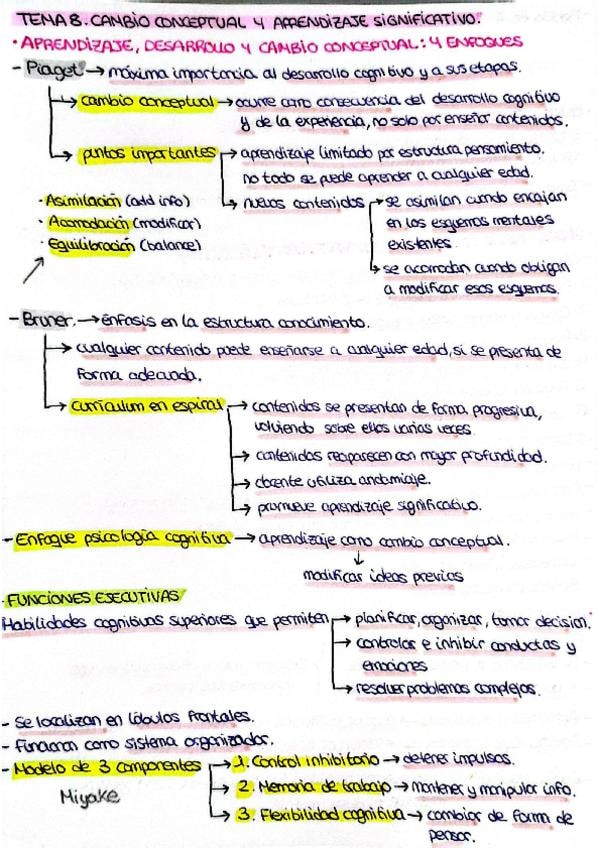 TEMA 8. CAMBIO CONCEPTUAL Y APRENDIZAJE SIGNIFICATIVO.
· APRENDIZAJE, DESARROLLO Y CAMBIO CONCEPTUAL: 4 ENFOQUES
- Piaget → máxima importancia al desarrollo cognitivo y a sus etapas.
→ cambio conceptual → ocurre como consecuencia del desarrollo cognitivo
y de la experiencia, no solo por enseñar contenidos.
→ puntos importantes → aprendizaje limitado por estructura pensamiento.
no todo se puede aprender a cualquier edad.
→ nuevos contenidos → se asimilan cuando encajan
en los esquemas mentales
existentes
→ se acomodan cuando obligan
a modificar esos esquemas.
· Asimilación (add info)
· Acomodación (modificar)
· Equilibración (balance)
- Bruner. → énfasis en la estructura conocimiento.
→ cualquier contenido puede enseñarse a cualquier edad, si se presenta de
forma adecuada.
→ currículum en espiral → contenidos se presentan de forma progresiva,
volviendo sobre ellos varias veces
→ contenidos reaparecen con mayor profundidad.
→ docente utiliza andamiaje.
→ promueve aprendizaje significativo.
- Enfoque psicología cognitiva → aprendizaje como cambio conceptual.
↓
modificar ideas previas
· FUNCIONES EJECUTIVAS
Habilidades cognitivas superiores que permiten → planificar, organizar, tomar decision.
→ controlar e inhibir conductas y
emociones
→ resolver problemas complejos.
- Se localizan en lóbulos frontales.
- Funcionan como sistema organizador.
- Modelo de 3 componentes → 1. Control inhibitorio → detener impulsos.
Miyake → 2. Memoria de trabajo → mantener y manipular info.
→ 3. Flexibilidad cognitiva → cambiar de forma de
pensar.